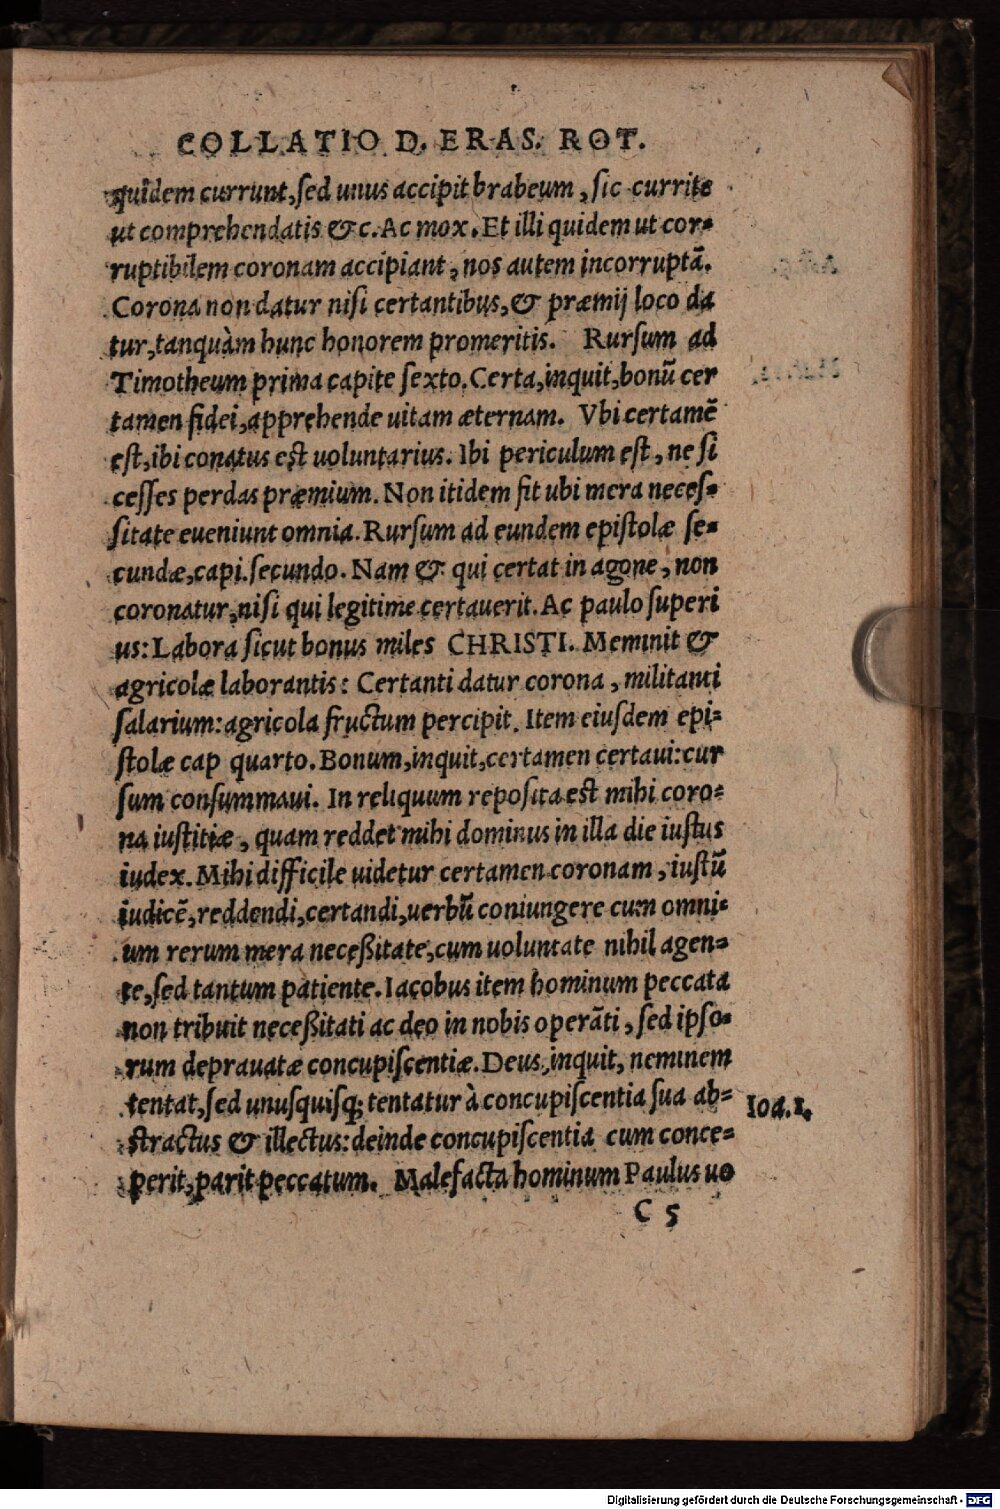 COLLATIO D. ERAS. ROT.
quidem currunt, sed unus accipit brabeum, sic currite
ut comprehendatis &c. Ac mox. Et illi quidem ut cor=
ruptibilem coronam accipiant, nos autem incorruptā.
Corona non datur nisi certantibus, & præmij loco da
tur, tanquàm hunc honorem promeritis. Rursum ad
Timotheum prima capite sexto. Certa, inquit, bonū cer
tamen fidei, apprehende uitam æternam. Vbi certamē
est, ibi conatus est uoluntarius. Ibi periculum est, ne si
cesses perdas præmium. Non itidem fit ubi mera neces=
sitate eueniunt omnia. Rursum ad eundem epistolæ se=
cundæ, capi. secundo. Nam & qui certat in agone, non
coronatur, nisi qui legitime certauerit. Ac paulo superi
us: Labora sicut bonus miles CHRISTI. Meminit &
agricolæ laborantis: Certanti datur corona, militanti
salarium: agricola fructum percipit. Item eiusdem epi=
stolæ cap quarto. Bonum, inquit, certamen certaui: cur
sum consummaui. In reliquum reposita est mihi coro=
na iustitiæ, quam reddet mihi dominus in illa die iustus
iudex. Mihi difficile uidetur certamen coronam, iustū
iudicē, reddendi, certandi, uerbū coniungere cum omni=
um rerum mera neceßitate, cum uoluntate nihil agen=
te, sed tantum patiente. Iacobus item hominum peccata
non tribuit neceßitati ac deo in nobis operāti, sed ipso=
rum deprauatæ concupiscentiæ. Deus, inquit, neminem
tentat, sed unusquisq; tentatur à concupiscentia sua ab=
stractus & illectus: deinde concupiscentia cum conce=
perit, parit peccatum. Malefacta hominum Paulus uo
Ioa. 1.
C 5
Digitalisierung gefördert durch die Deutsche Forschungsgemeinschaft - DFG